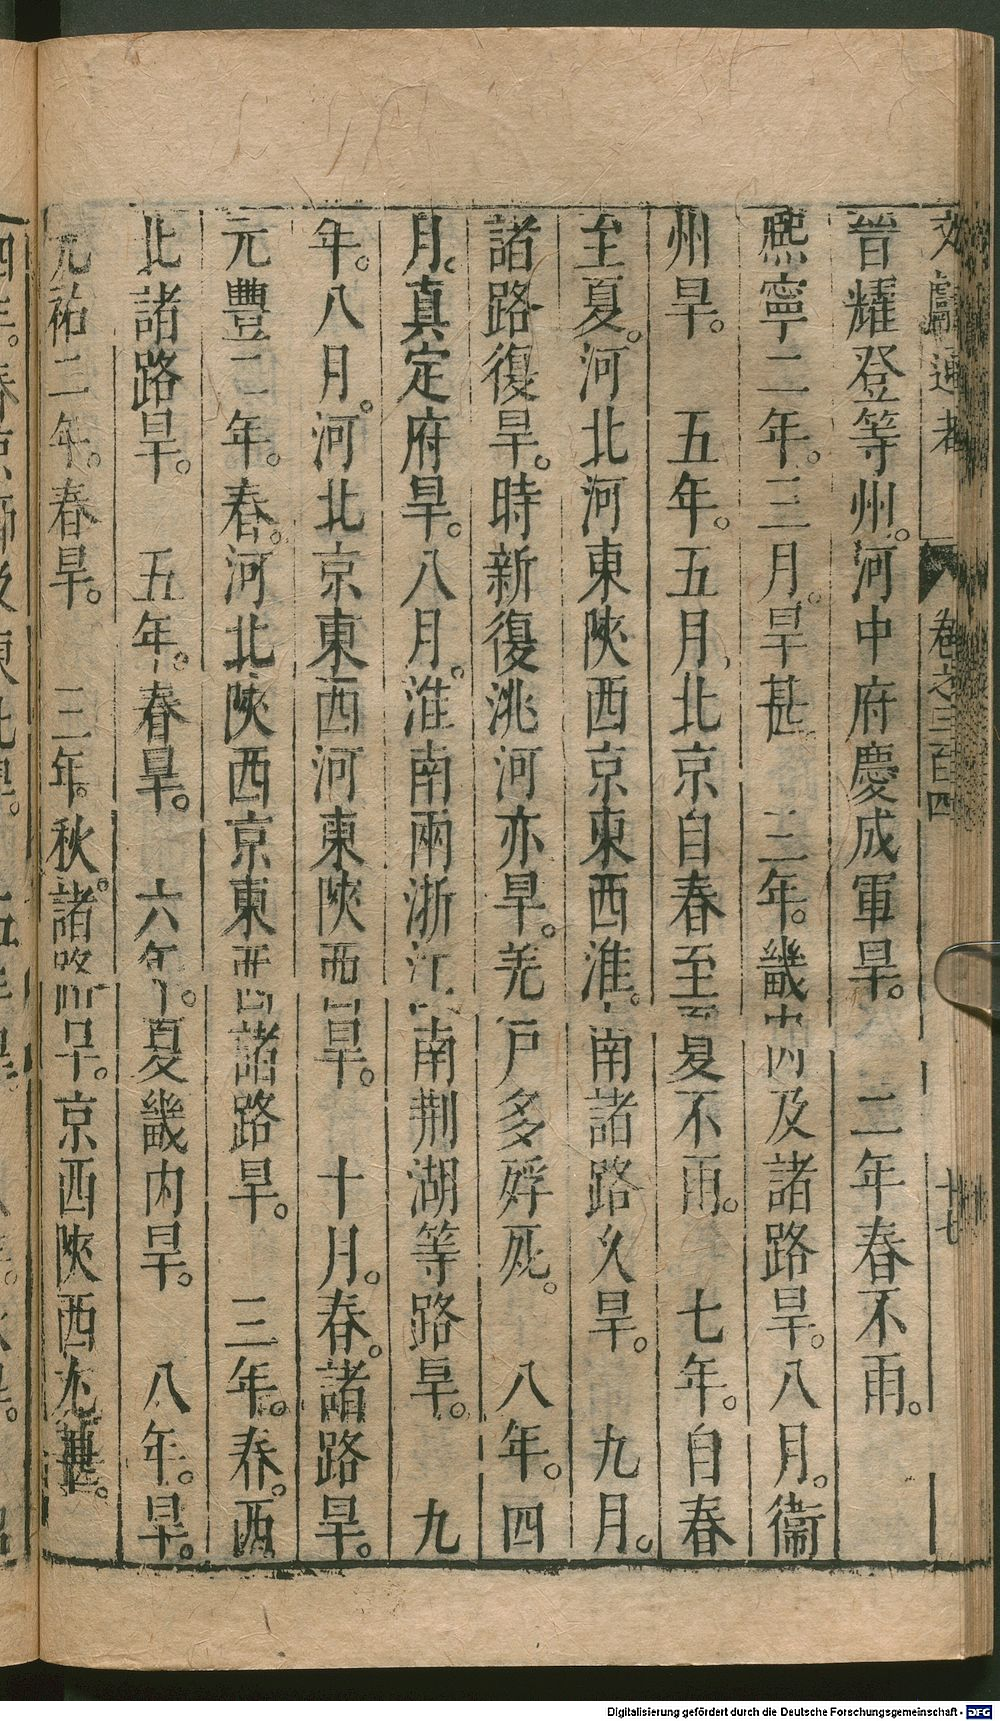 文獻通考 卷之三百四 十七
晉耀登等州。河中府慶成軍旱。 二年春不雨。
熙寧二年。三月。旱甚。 三年。畿內及諸路旱。八月。衞
州旱。 五年。五月、北京自春至夏不雨。 七年。自春
至夏。河北河東陝西京東西淮南諸路久旱。 九月。
諸路復旱。時新復洮河亦旱。羌戸多殍死。 八年。四
月。真定府旱。八月。淮南兩浙江南荆湖等路旱。 九
年。八月。河北京東西河東陝西旱。 十月。春。諸路旱。
元豐二年。春。河北陝西京東西諸路旱。 三年。春。西
北諸路旱。 五年。春旱。 六年。夏畿内旱。 八年。旱。
元祐二年。春旱。 三年。秋。諸路旱。京西陝西尤甚。
Digitalisierung gefördert durch die Deutsche Forschungsgemeinschaft - DFG